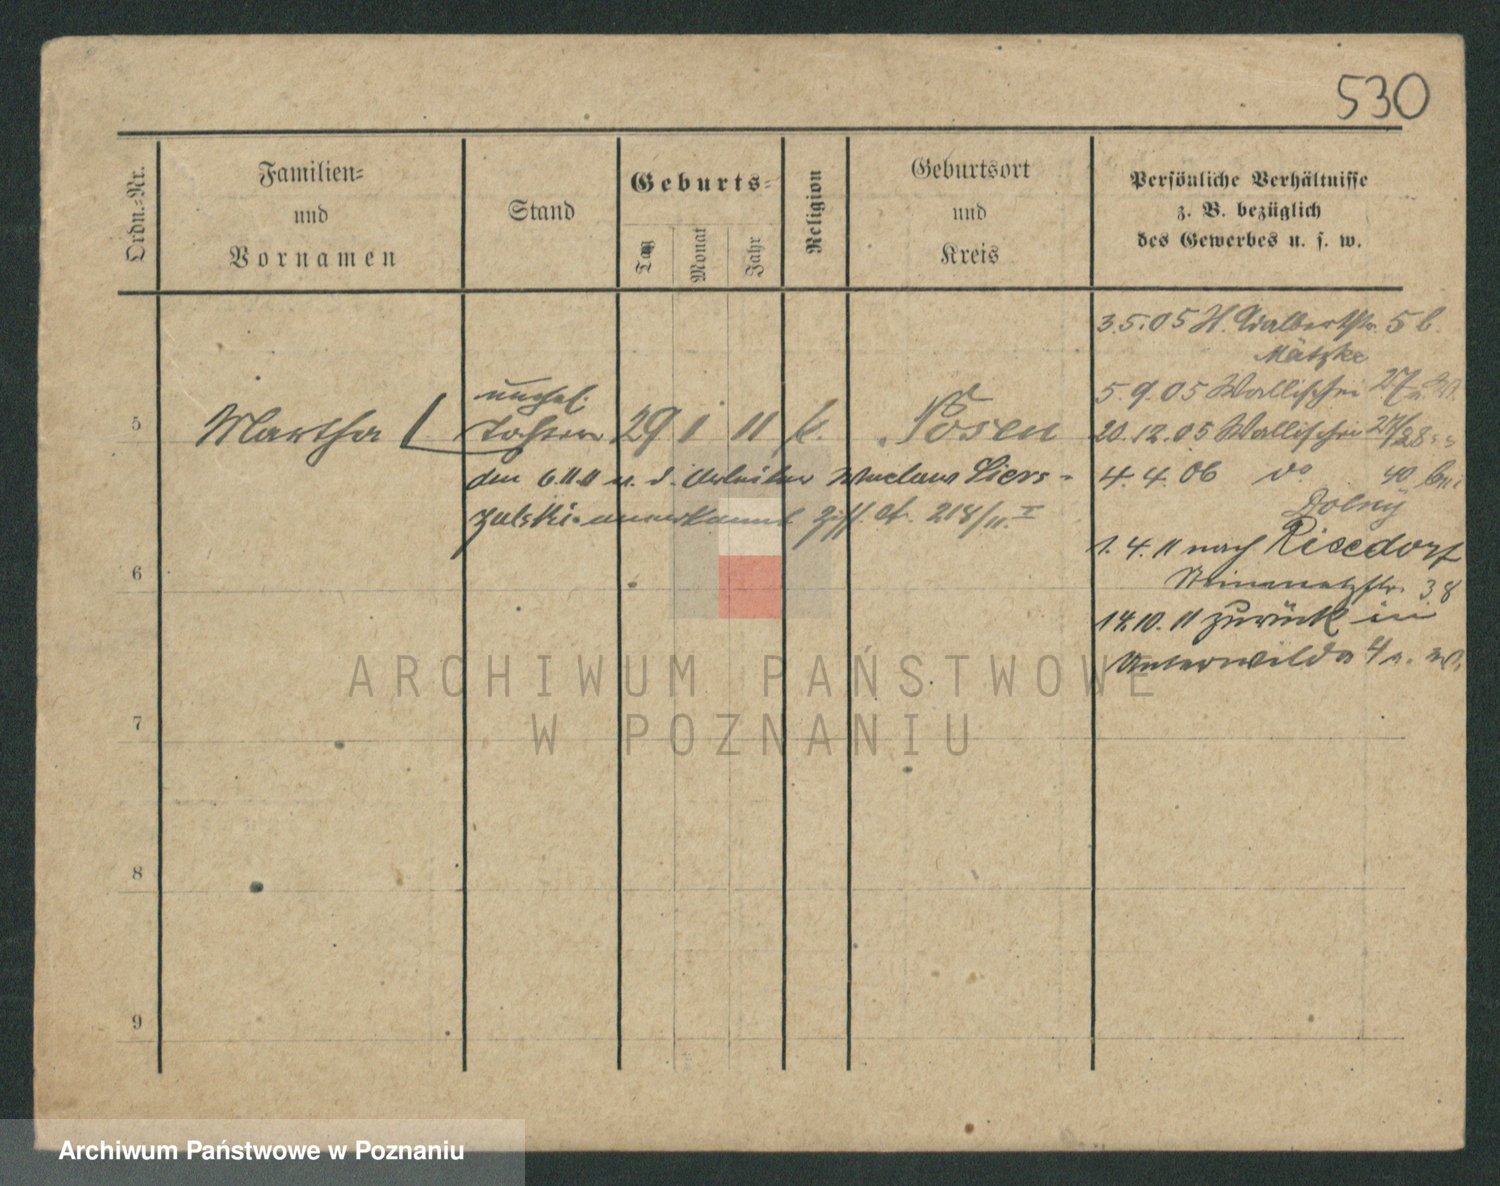 530
Ordn.-Nr.
Familien-
und
Vornamen
Stand
Geburts-
Tag
Monat
Jahr
Religion
Geburtsort
und
Kreis
Persönliche Verhältnisse
z. B. bezüglich
des Gewerbes u. s. w.
3.5.05 H. Adalbertstr. 5 b.
Mätzke
5.9.05 Wallischei 27
20.12.05 Wallischei 27/28
4.4.06 do 40 bei
Dolny
1.4.11 nach Rixdorf
38
14.10.11 zurück in
Unterwilda 4a.
5
Martha
unehel.
Tochter
29 1 11 k.
Posen
den 6.11.11 v. d. Arbeiter Siers-
zulski anerkannt 218/11. I
6
7
8
9
ARCHIWUM PAŃSTWOWE
W POZNANIU
Archiwum Państwowe w Poznaniu